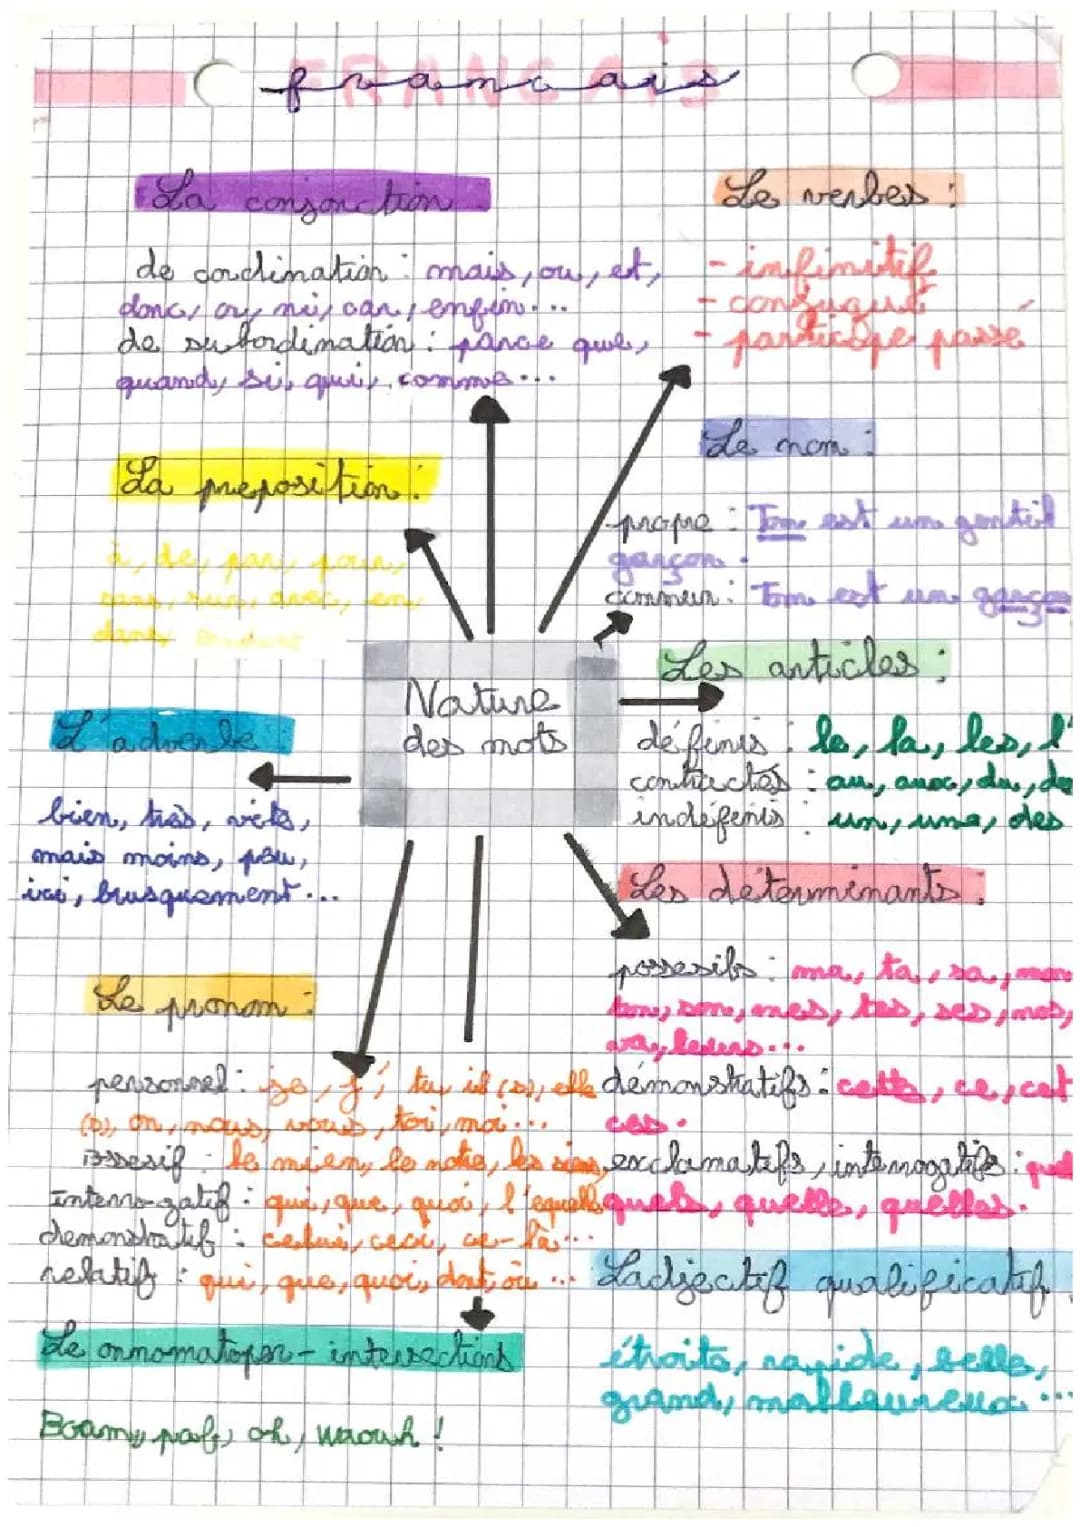 FRANCAIS
francais
La conjonction
de cordination : mais, ou, et,
donc, or, ni, car, enfin...
de subordination : parce que,
quand, si, qui, comme...
Le verbes :
- infinitif
- conjugué
- participe passé
La preposition :
à, de, par, pour,
sans, sur, avec, en,
dans,
Le nom :
propre : Tom est un gentil
garçon.
commun : Tom est un garçon
Nature
des mots
Les articles :
définis : le, la, les, l'
contractés : au, aux, du, de
indéfinis : un, une, des
L'adverbe
bien, très, vite,
mais moins, peu,
ici, brusquement...
Les déterminants :
possesifs : ma, ta, sa, mon
ton, son, mes, tes, ses, nos,
leurs...
démonstratifs : cette, ce, cet
ces.
exclamatifs, interrogatifs : quel
quels, quelle, quelles.
Le pronom :
personnel : je, j', tu, il (s), elle
(s), on, nous, vous, toi, moi...
ossesif : le mien, le notre, les siens,
Interro-gatif : qui, que, quoi, l'equelle
demonstratif : celui, ceci, ce-là...
relatif : qui, que, quoi, dont, où...
L'adjectif qualificatif
étroits, rapide, belle,
grand, malheureux...
Le onnomatoper - intersections
Boam, paf, oh, waouh !